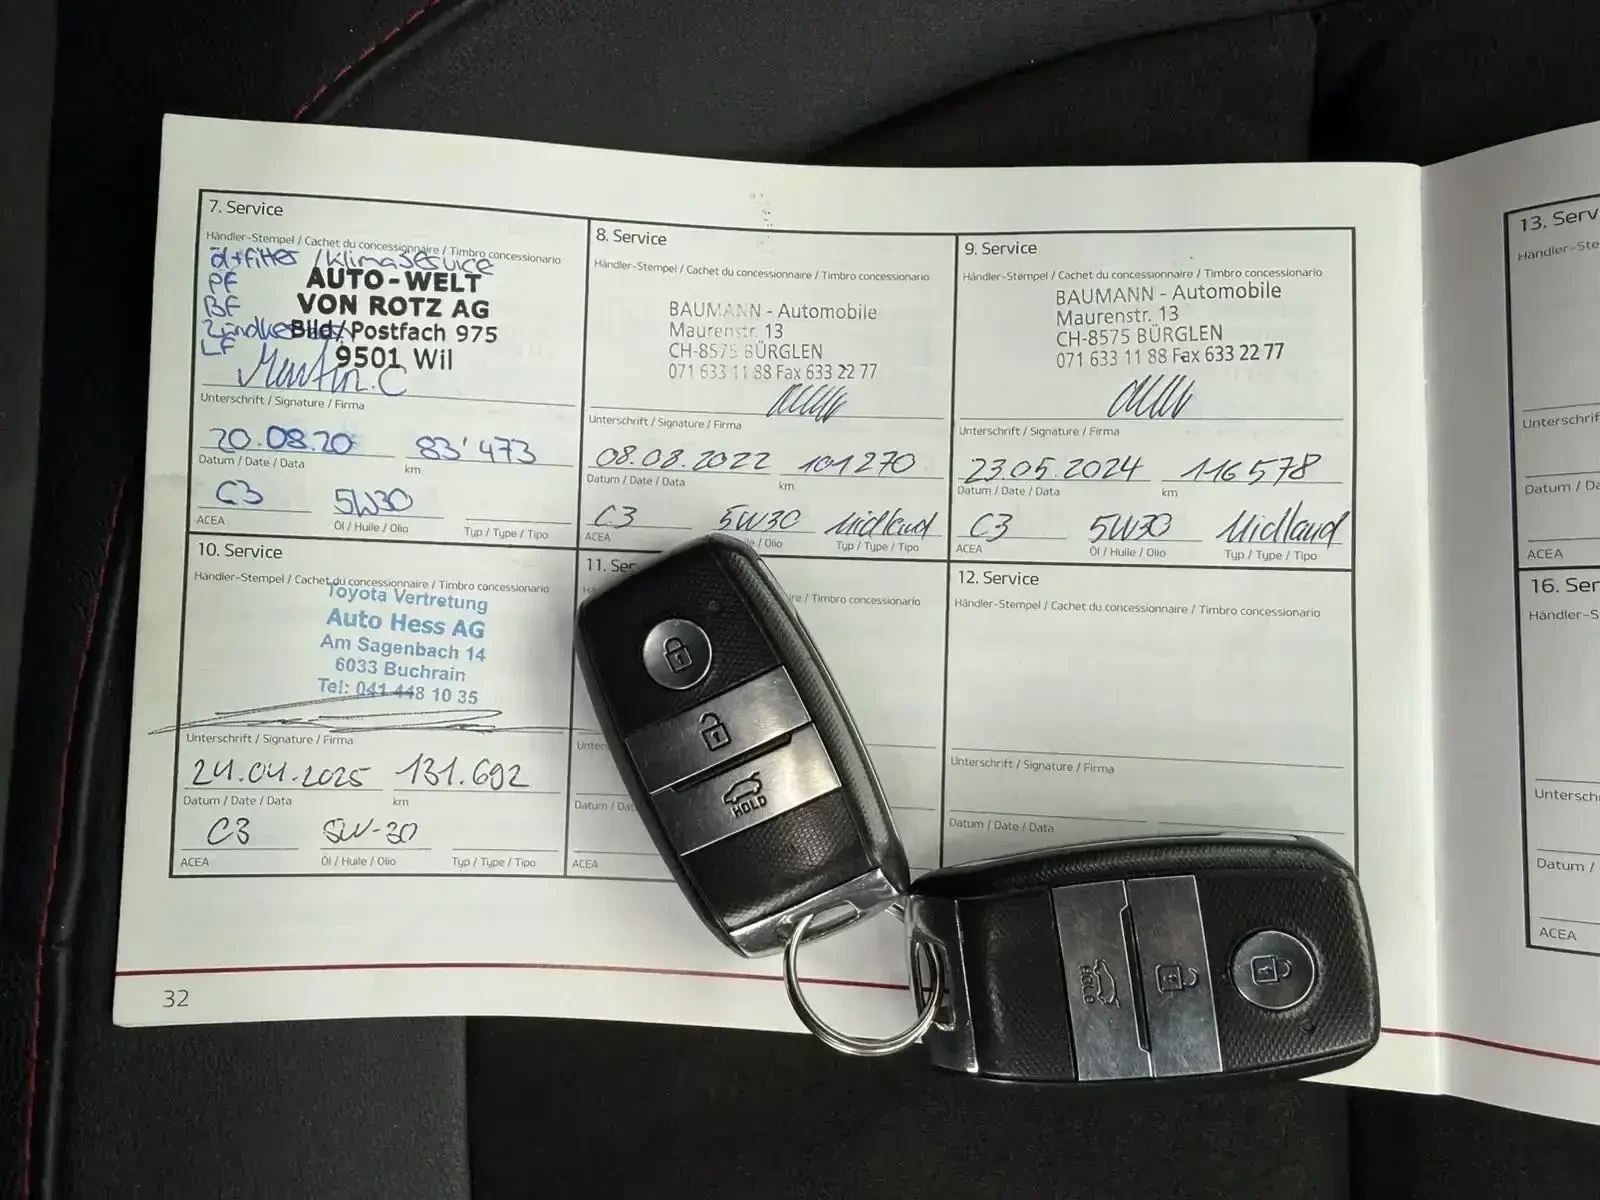 7. Service
Händler-Stempel / Cachet du concessionnaire / Timbro concessionario
Öl+filter / Klimaservice
PF
BF
LF
AUTO-WELT
VON ROTZ AG
Bild/Postfach 975
9501 Wil
Martin.C
Unterschrift / Signature / Firma
20.08.20 83'473
Datum / Date / Data km
C3 5W30
ACEA Öl / Huile / Olio Typ / Type / Tipo
8. Service
Händler-Stempel / Cachet du concessionnaire / Timbro concessionario
BAUMANN - Automobile
Maurenstr. 13
CH-8575 BÜRGLEN
071 633 11 88 Fax 633 22 77
Unterschrift / Signature / Firma
08.08.2022 101270
Datum / Date / Data km
C3 5W30 Midland
ACEA / Olio Typ / Type / Tipo
9. Service
Händler-Stempel / Cachet du concessionnaire / Timbro concessionario
BAUMANN - Automobile
Maurenstr. 13
CH-8575 BÜRGLEN
071 633 11 88 Fax 633 22 77
Unterschrift / Signature / Firma
23.05.2024 116578
Datum / Date / Data km
C3 5W30 Midland
ACEA Öl / Huile / Olio Typ / Type / Tipo
10. Service
Händler-Stempel / Cachet du concessionnaire / Timbro concessionario
Toyota Vertretung
Auto Hess AG
Am Sagenbach 14
6033 Buchrain
Tel: 041 448 10 35
Unterschrift / Signature / Firma
24.04.2025 131.692
Datum / Date / Data km
C3 5W-30
ACEA Öl / Huile / Olio Typ / Type / Tipo
11. Ser
/ Timbro concessionario
Unter
Datum / Dat
ACEA
12. Service
Händler-Stempel / Cachet du concessionnaire / Timbro concessionario
Unterschrift / Signature / Firma
Datum / Date / Data
HOLD
HOLD
32
13. Serv
Händler-Ste
Unterschrif
Datum / Da
ACEA
16. Ser
Händler-S
Untersch
Datum /
ACEA